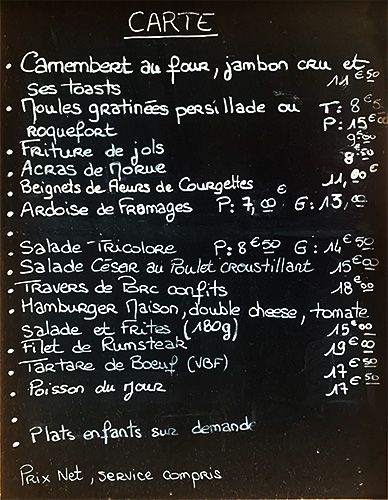 CARTE
• Camembert au four, jambon cru et
ses toasts 11€50
• Moules gratinées persillade ou T: 8€50
roquefort P: 15€00
• Friture de jols 9€00
• Acras de Morue 8€50
• Beignets de fleurs de Courgettes 11,00€
• Ardoise de Fromages P: 7,00€ G: 13,00€
•
• Salade Tricolore P: 8€50 G: 14€50
• Salade César au Poulet croustillant 15€00
• Travers de Porc confits 18€00
• Hamburger Maison, double cheese, tomate
salade et frites (180g) 15€00
• Filet de Rumsteak 19€00
• Tartare de Boeuf (VBF) 17€50
• Poisson du jour 17€50
•
• Plats enfants sur demande
Prix Net, service compris